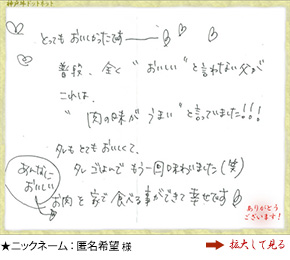 神戸牛ドットネット
とっても おいしかったです
普段、全く "おいしい" と言わない父が
これは、
"肉の味が うまい" と言っていました!!!
タレもとてもおいしくて、
タレ ごはんで もう一回味わいました(笑)
あんなに
おいしい
お肉を家で食べる事ができて幸せです
ありがとう
ございます!
★ニックネーム：匿名希望 様
拡大して見る